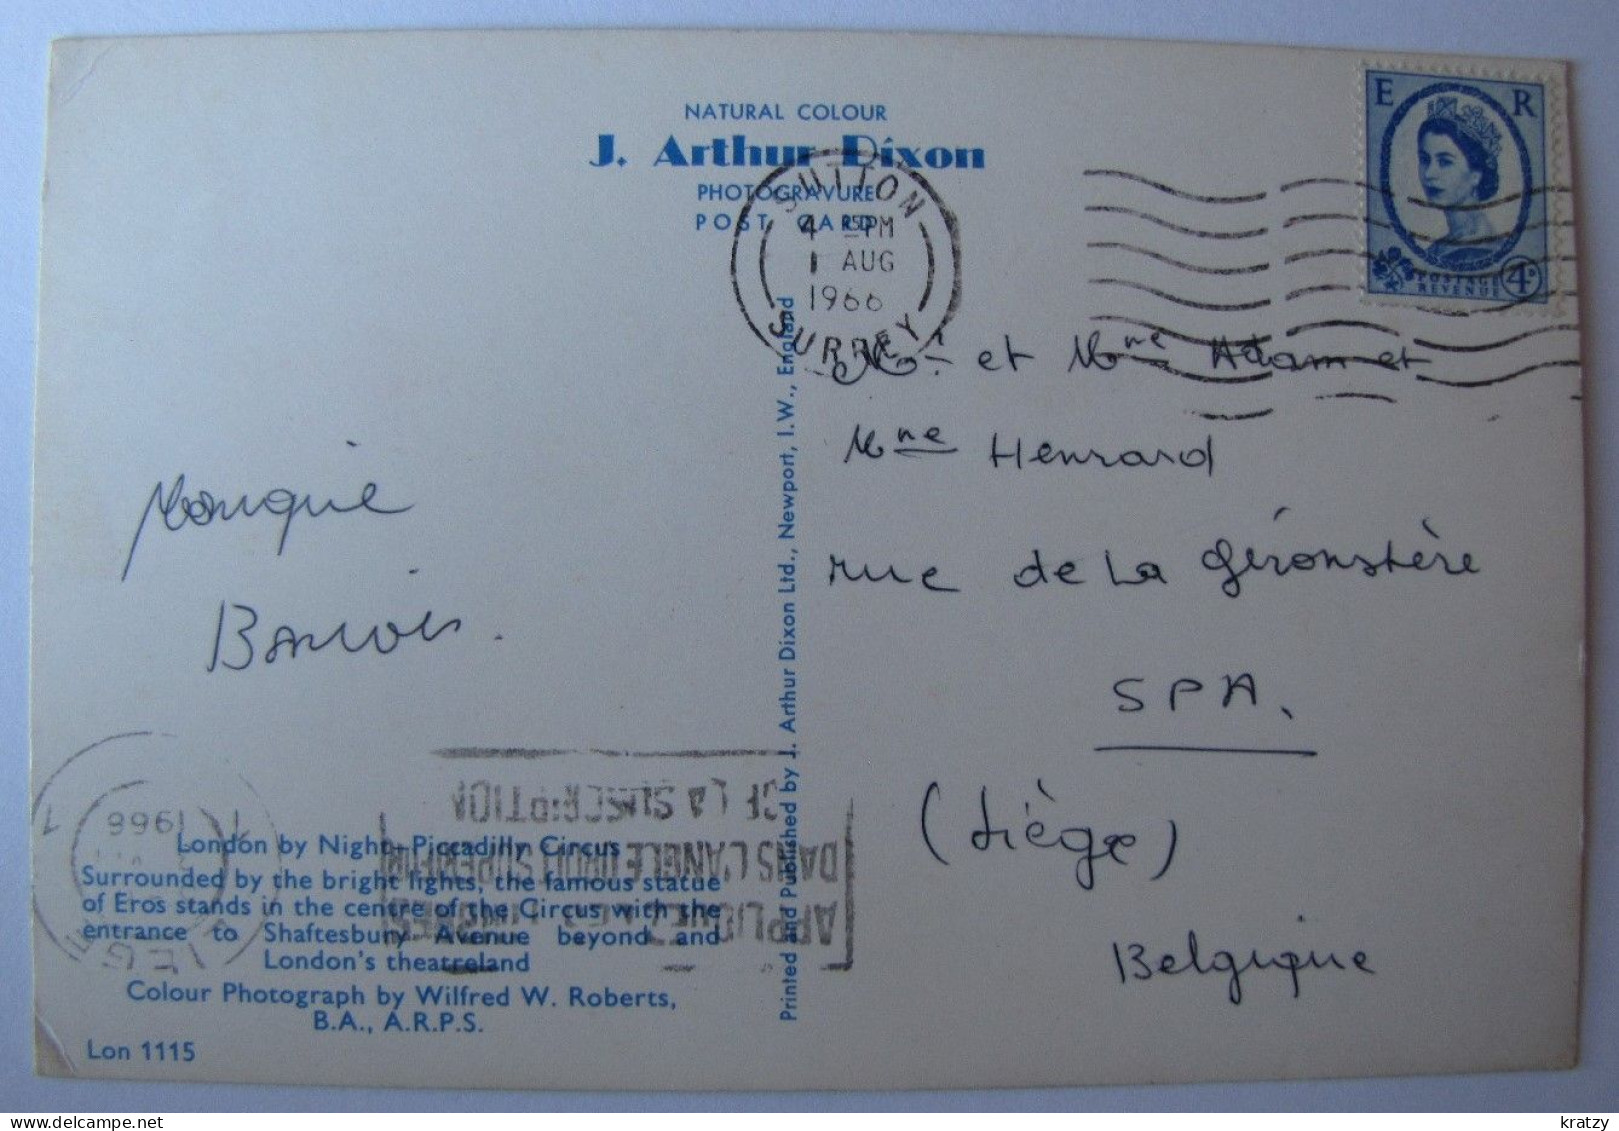 NATURAL COLOUR
J. Arthur Dixon
PHOTOGRAVURE
POST CARD
E R
POSTAGE
REVENUE
4D
SUTTON
4 15 PM
1 AUG
1966
SURREY
Mr et Mme Adam et
Mme Henrard
rue de La Géronstère
SPA.
(Liège)
Belgique
Printed and Published by J. Arthur Dixon Ltd., Newport, I.W., England
1966
LIEGE
1
APPLIQUEZ LES TIMBRES
DANS L'ANGLE DROIT SUPERIEUR
DE LA SUSCRIPTION
London by Night—Piccadilly Circus
Surrounded by the bright lights, the famous statue
of Eros stands in the centre of the Circus with the
entrance to Shaftesbury Avenue beyond and
London's theatreland
Colour Photograph by Wilfred W. Roberts,
B.A., A.R.P.S.
Lon 1115
kratzy